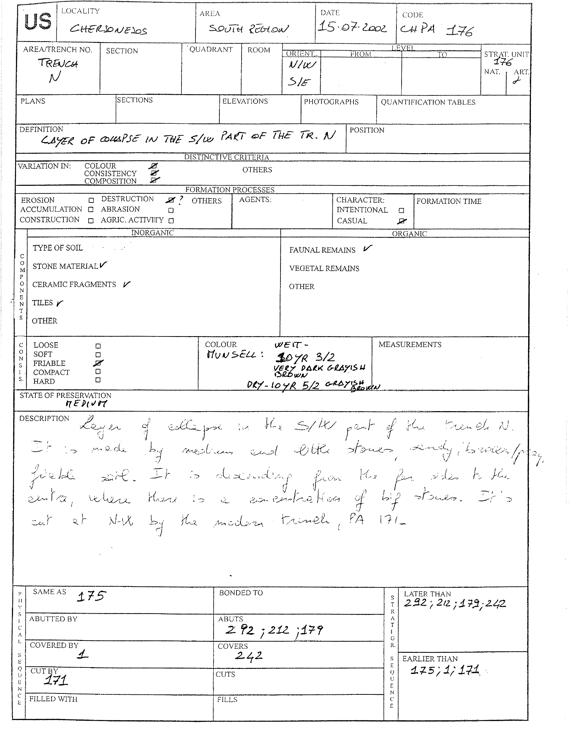 US
LOCALITY
CHERSONESOS
AREA
SOUTH REGION
DATE
15-07-2002
CODE
CH PA 176
AREA/TRENCH NO.
TRENCH
N
SECTION
QUADRANT
ROOM
ORIENT.
N/W
S/E
LEVEL
FROM
TO
STRAT. UNIT
176
NAT.
ART.
PLANS
SECTIONS
ELEVATIONS
PHOTOGRAPHS
QUANTIFICATION TABLES
DEFINITION
LAYER OF COLLAPSE IN THE S/W PART OF THE TR. N
POSITION
DISTINCTIVE CRITERIA
VARIATION IN:
COLOUR
CONSISTENCY
COMPOSITION
OTHERS
FORMATION PROCESSES
EROSION
DESTRUCTION ?
OTHERS
ACCUMULATION
ABRASION
CONSTRUCTION
AGRIC. ACTIVITY
AGENTS:
CHARACTER:
INTENTIONAL
CASUAL
FORMATION TIME
COMPONENTS
INORGANIC
TYPE OF SOIL
STONE MATERIAL ✓
CERAMIC FRAGMENTS ✓
TILES ✓
OTHER
ORGANIC
FAUNAL REMAINS ✓
VEGETAL REMAINS
OTHER
CONSIS.
LOOSE
SOFT
FRIABLE
COMPACT
HARD
COLOUR
MUNSELL:
WET-
10YR 3/2
VERY DARK GRAYISH
BROWN
DRY-10YR 5/2 GRAYISH
BROWN
MEASUREMENTS
STATE OF PRESERVATION
MEDIUM
DESCRIPTION
Layer of collapse in the S/W part of the trench N.
It is made by medium and little stones, sandy,
friable soil. It is descending from the sides to the
centre, where there is a concentration of big stones. It's
cut at N-W by the modern trench, PA 171-
PHYSICAL SEQUENCE
SAME AS 175
BONDED TO
ABUTTED BY
ABUTS
292; 212; 179
COVERED BY
1
COVERS
242
CUT BY
171
CUTS
FILLED WITH
FILLS
STRATIGR. SEQUENCE
LATER THAN
292; 212; 179; 242
EARLIER THAN
175; 1; 171